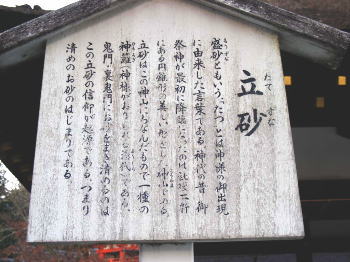 立砂
たて ずな
盛砂ともいう、たつとは神様の御出現
に由来した言葉である。神代の昔、御
祭神が最初に降臨になったのは
にある円錐形の美しい形をした神山である。
立砂はこの神山にちなんだもので一種の
神籬(神様がおりる依代)である。
鬼門、裏鬼門にお砂をまき清めるのは
この立砂の信仰が起源である。つまり
清めのお砂のはじまりである。